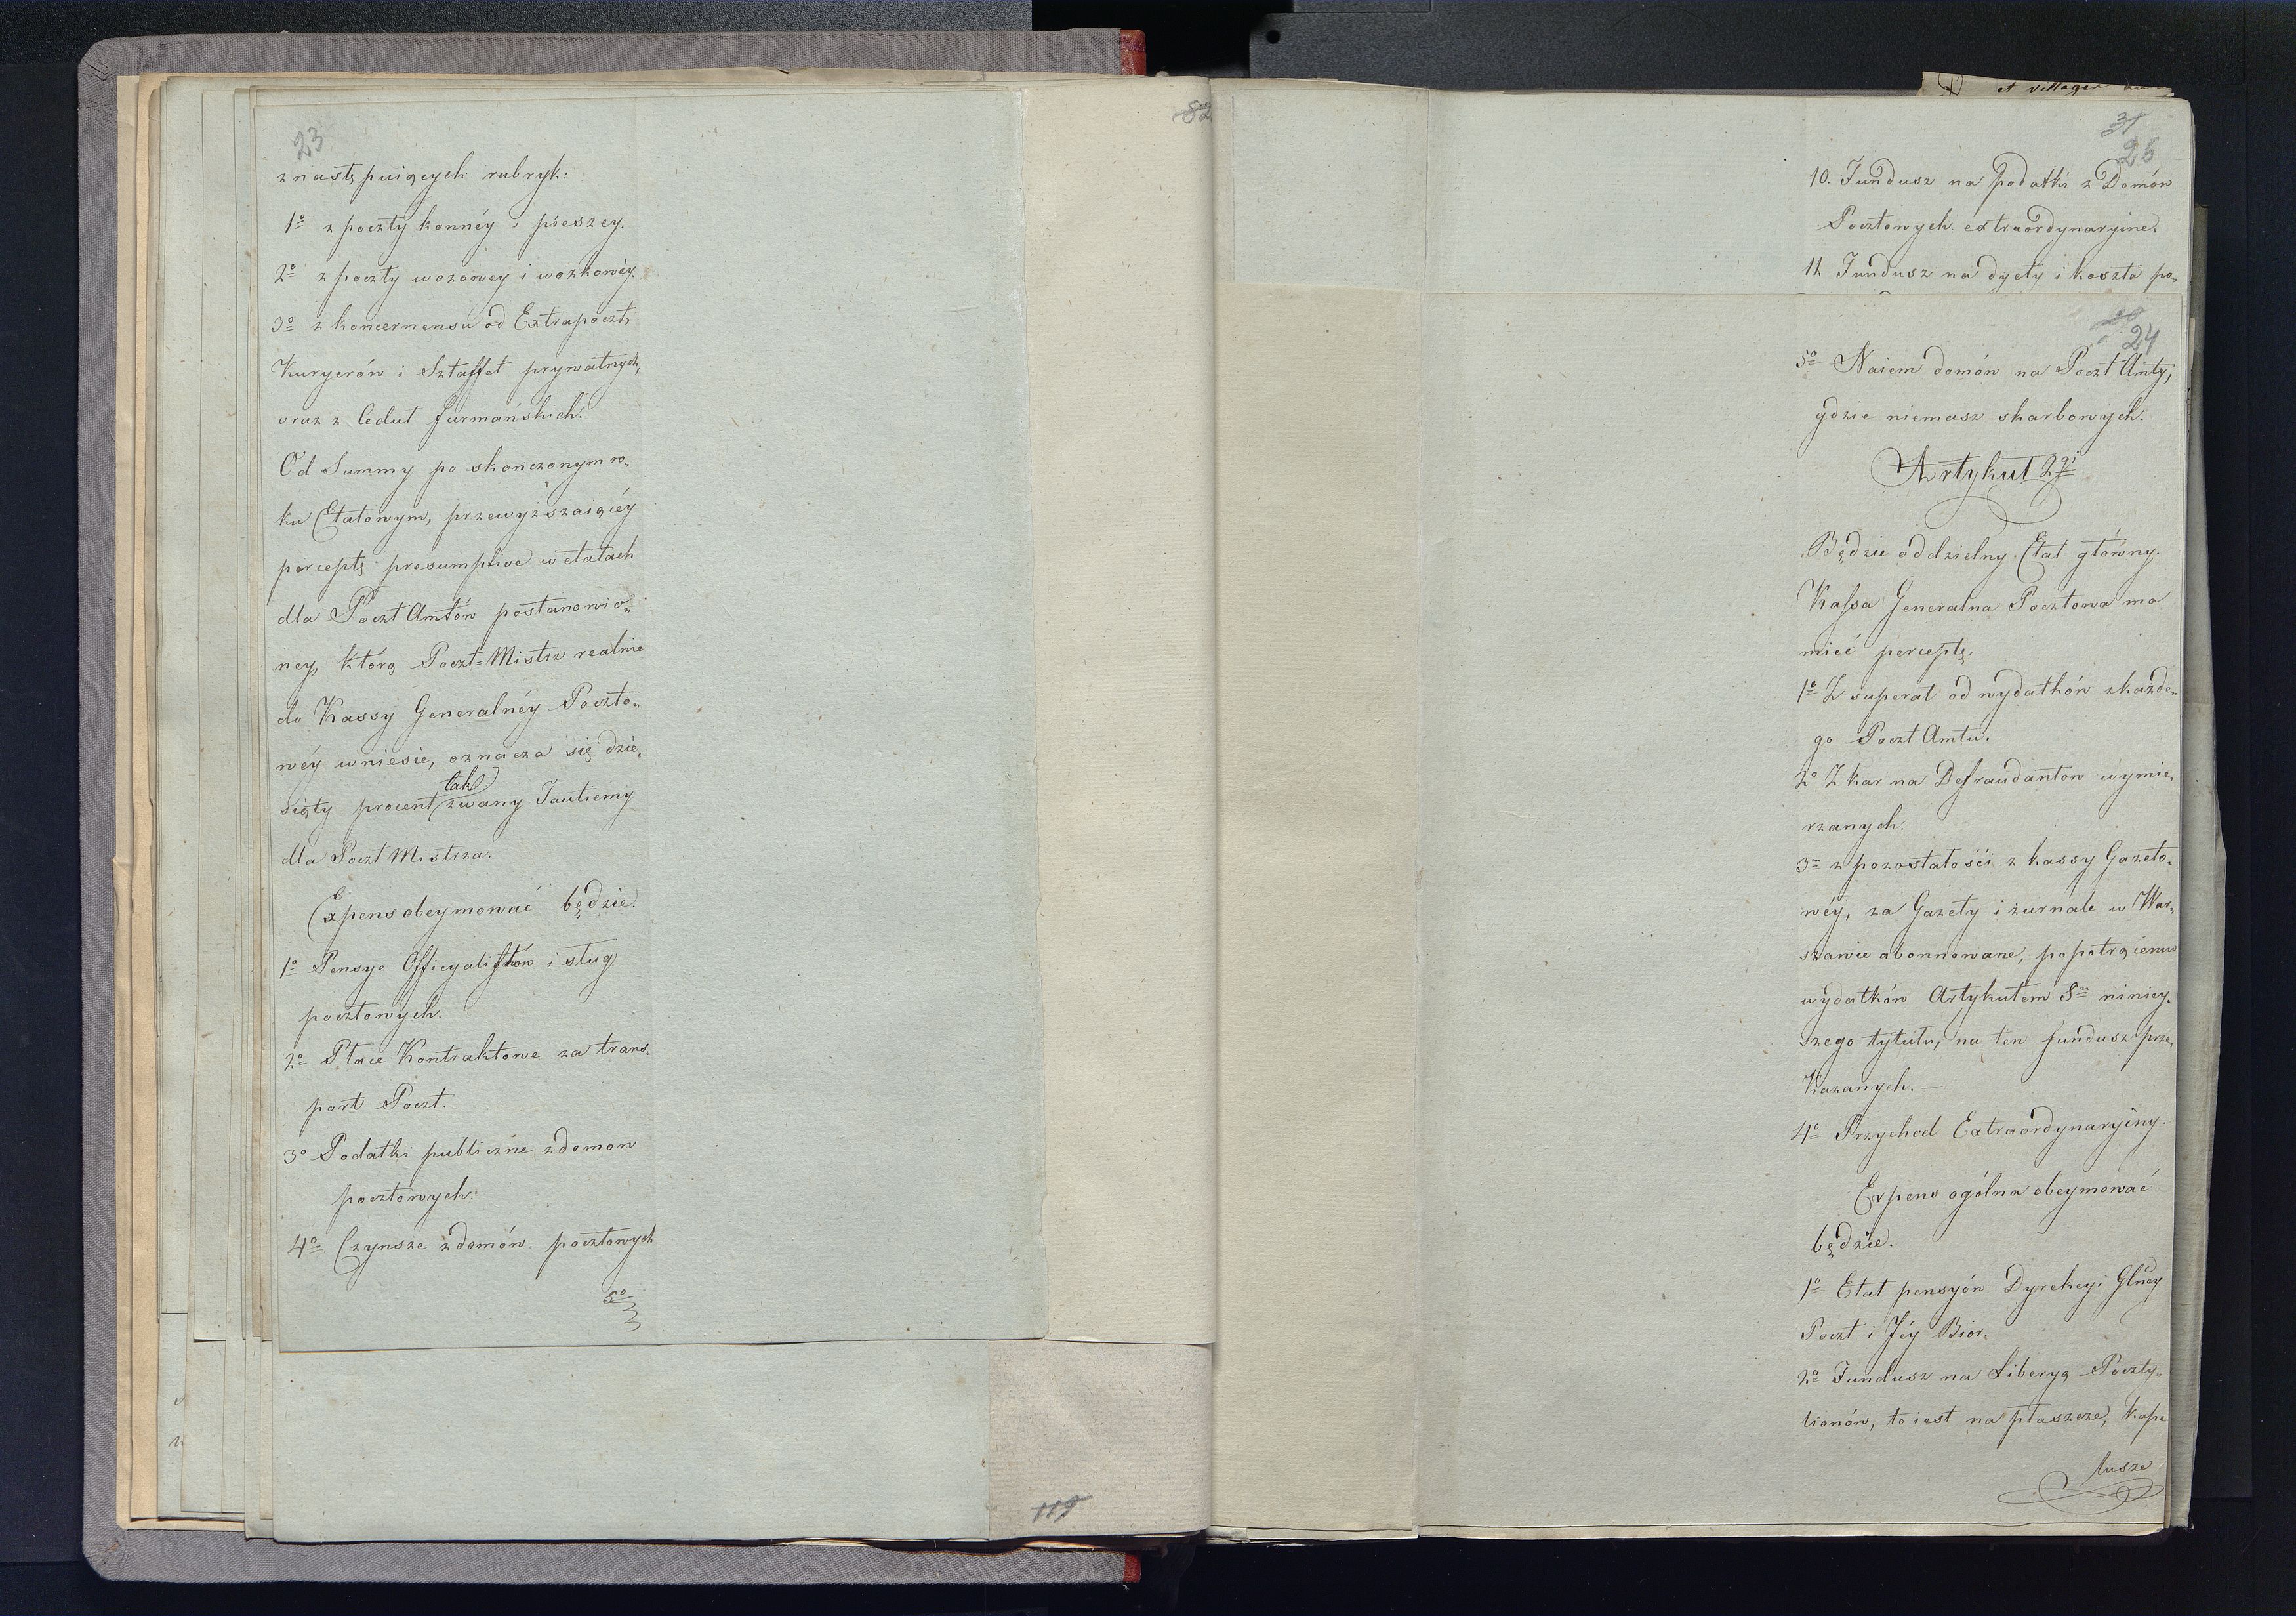 23
z następuiących rubryk:
1o z poczty konnéy i pieszey.
2o z poczty wozowey i wozkowéy.
3o z koncernensu od Extrapoczt,
Kuryerów i Sztaffet prywatnych,
oraz z cedut furmańskich.
Od Summy po skończonym ro„
ku Etatowym, przewyższaiącéy
perceptę presumptive w etatach
dla Poczt Amtów postanowio„
ney, którą Poczt=Mistrz realnie
do Kassy Generalnéy Poczto„
wéy wniesie, oznacza się dzie„
siąty procent tak zwany Tantiemy
dla Poczt Mistrza.
Expens obeymować będzie.
1o Pensye Officyalistów i sług
pocztowych.
2o Płace Kontraktowe za trans„
port Poczt.
3o Podatki publiczne z domow
pocztowych.
4o Czynsze z domów pocztowych
5o
82
119
et villages
31
25
10. Fundusz na podatki z Domów
Pocztowych extraordynaryine.
11. Fundusz na dyety i koszta po„
24
5o Naiem domów na Poczt Amty,
gdzie niemasz skarbowych.
Artykuł 2gi
Będzie oddzielny Etat główny.
Kassa Generalna Pocztowa ma
mieć perceptę.
1o Z superat od wydatków z każde„
go Poczt Amtu.
2o Z kar na Defraudantow wymie„
rzanych.
3o z pozostałośći z kassy Gazeto„
wéy, za Gazety i żurnale w War„
szawie abonnowane, po potrąceniu
wydatków Artykułem 8m niniey„
szego tytułu, na ten fundusz prze„
kazanych. —
4o Przychod Extraordynaryiny.
Expens ogólna obeymować
będzie.
1o Etat pensyón Dyrekcyi Głney
Poczt i Jéy Biór.
2o Fundusz na Liberyą Poczty„
lionów, to iest na płaszcze, kape
lusze